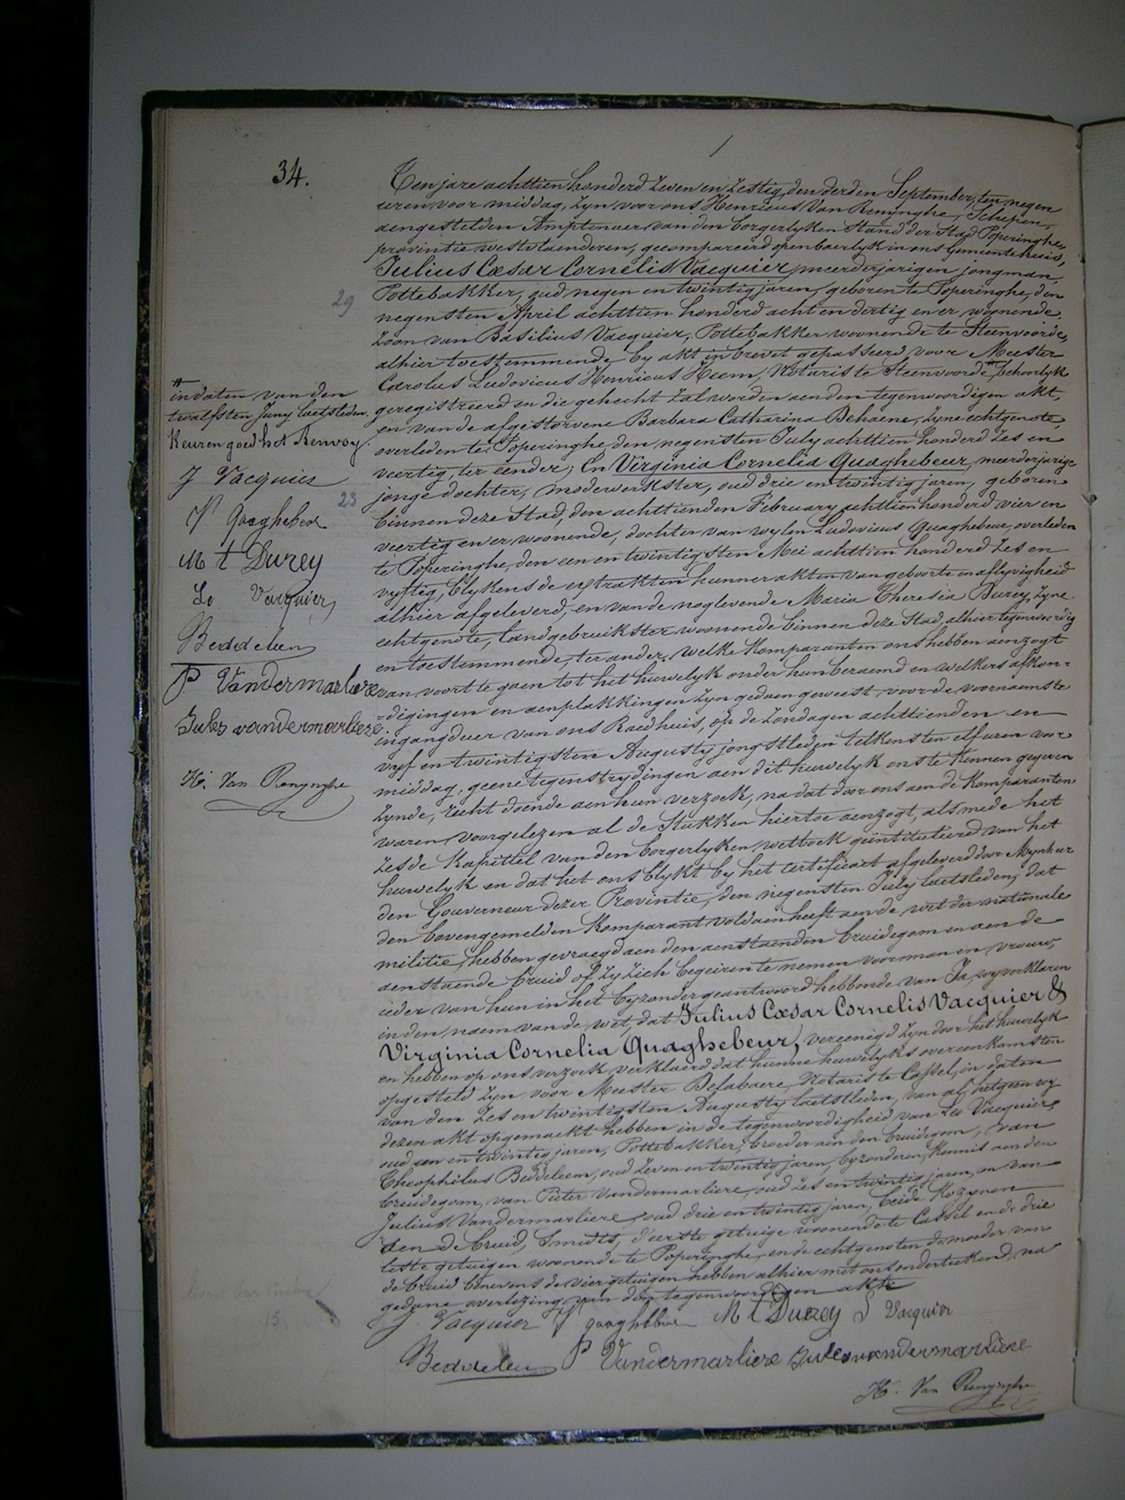 34.
Ten jare achttien honderd zeven en zestig, den derden September, ten negen
uren voor middag, zyn voor ons Henricus Van Renynghe, Schepen,
aengestelden Amptenaer van den borgerlyken Stand der Stad Poperinghe,
provintie westvlaenderen, gecompareerd openbaerlyk in ons Gemeentehuis,
Julius Cæsar Cornelis Vacquier, meerderjarigen jongman,
Pottebakker, oud negen en twintig jaren, geboren te Poperinghe, den
29
negensten April achttien honderd acht en dertig en er woonende,
Zoon van Basilius Vacquier, Pottebakker woonende te Steenvoorde,
alhier toestemmende by akt in brevet gepasseerd voor Meester
Carolus Ludovicus Henricus Heem, Notaris te Steenvoorde, behoorlyk
geregistreerd en die gehecht zal worden aen den tegenwoordigen akt,
en van de afgestorvene Barbara Catharina Behaene, zyne echtgenote,
overleden te Poperinghe, den negensten July achttien honderd zes en
veertig, ter eender; En Virginia Cornelia Quaghebeur, meerderjarige
jonge dochter, modewerkster, oud drie en twintig jaren, geboren
23
binnen deze Stad, den achttienden February achttien honderd vier en
veertig en er woonende, dochter van wylen Ludovicus Quaghebeur, overleden
te Poperinghe, den een en twintigsten Mei achttien honderd zes en
vyftig, blykens de extrakten hunner akten van geboorte en aflyvigheid
alhier afgeleverd, en van de noglevende Maria Theresia Durey, zyne
echtgenote, landgebruikster woonende binnen deze Stad, alhier tegenwoordig
en toestemmende, ter ander, welke komparanten ons hebben aenzogt
van voort te gaen tot het huwelyk onder hun beraemd en welkers afkon-
digingen en aenplakkingen zyn gedaen geweest, voor de voornaemste
ingangdeur van ons Raedhuis, op de Zondagen achttienden en
vyf en twintigsten Augusty jongstleden telkens ten elf uren voor
middag, geene tegenstrydingen aen dit huwelyk ons te kennen gegeven
zynde, recht doende aen hun verzoek, na dat door ons aen de komparanten
waren voorgelezen al de Stukken hiertoe aenzogt, als mede het
zesde kapittel van den borgerlyken wetboek geïntituleerd van het
huwelyk en dat het ons blykt by het certificaet afgeleverd door Mynheer
den Gouverneur dezer Provintie, den negensten July laetsleden, dat
den bovengemelden komparant voldaen heeft aen de wet der nationale
militie, hebben gevraegd aen den aenstaenden bruidegom en aen de
aenstaende bruid of zy zich begeiren te nemen voor man en vrouw,
ieder van hun in het byzonder geantwoord hebbende van Ja, wy verklaren
in den naem van de wet, dat Julius Cæsar Cornelis Vacquier &
Virginia Cornelia Quaghebeur, vereenigd zyn door het huwelyk
en hebben op ons verzoek verklaerd dat hunne huwelyks overeenkomsten
opgesteld zyn voor Meester Defabaere, Notaris te Cassel, in daten
van den zes en twintigsten Augusty laetstleden, van al hetgeen wy
dezen akt opgemaekt hebben in de tegenwoordigheid van Leo Vacquier,
oud een en twintig jaren, Pottebakker, broeder aen den bruidegom, van
Theophilus Beddeleem, oud zeven en twintig jaren, byzonderen, kennis aen den
bruidegom, van Pieter Vandermarliere, oud zes en twintig jaren, en van
Julius Vandermarliere, oud drie en twintig jaren, beide Kozynen
aen de bruid, Smidts, d'eerste getuige woonende te Cassel en de drie
leste getuigen woonende te Poperinghe, en de echtgenoten de moeder van
de bruid benevens de vier getuigen hebben alhier met ons onderteekend, na
gedane overlezing van den tegenwoordigen akte
J Vacquier V quaghebeur M t Durey L Vacquier
Beddeleem P Vandermarliere Jules vandermarliere
H. Van Renynghe
in daten van den
twalfsten Juny laetsleden.
Keuren goed het Renvoy.
J Vacquier
V quaghebeur
M t Durey
Lo Vacquier
Beddeleem
P Vandermarliere
Jules vandermarliere
H. Van Renynghe